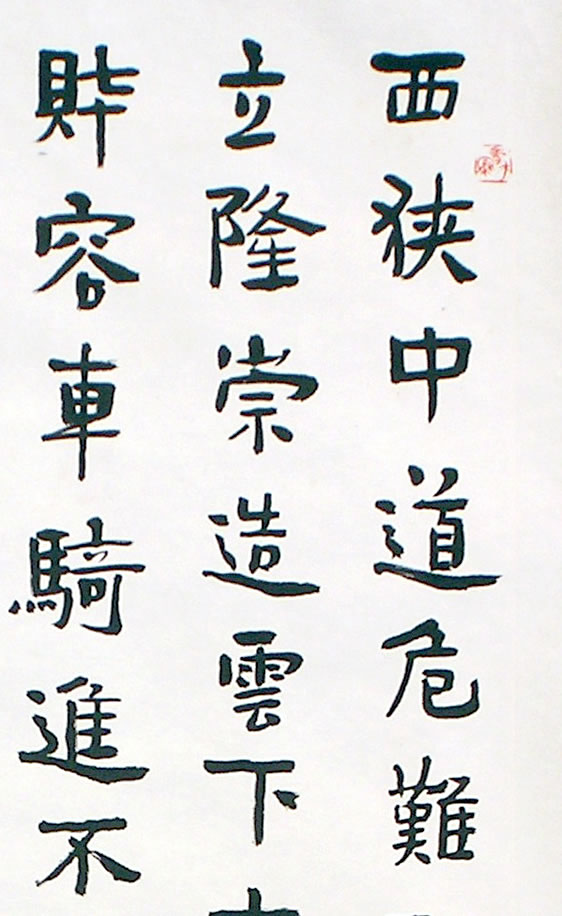 西狭中道危難
立隆崇造雲下
容車騎進不